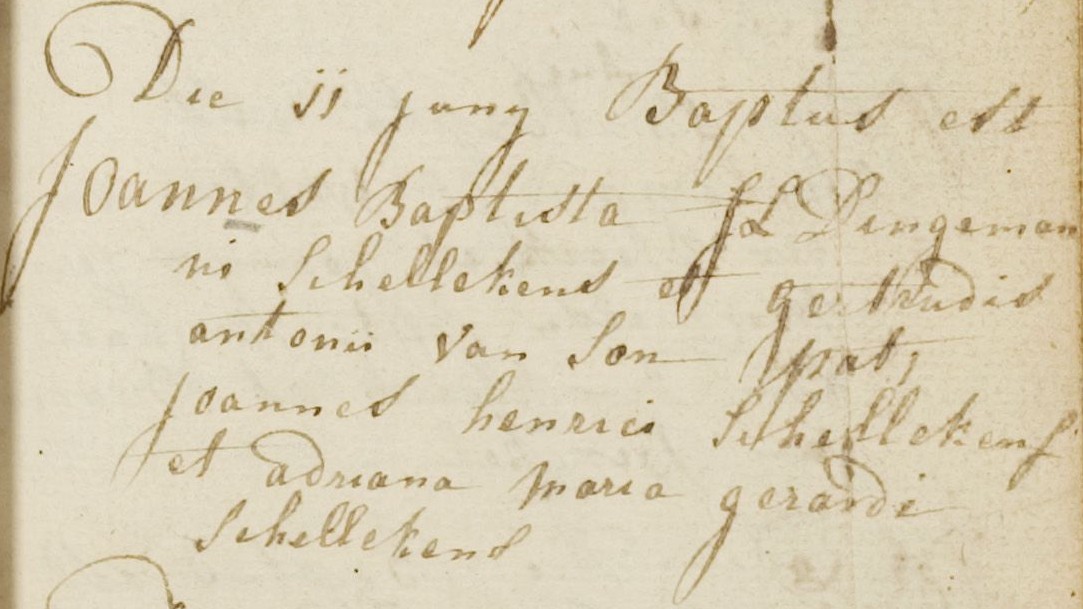 Die jj juny Baptus est
Joannes Baptista fL Dingeman
ni Schellekens et gertrudis
antonii van Son pat,
joannes henrici Schellekens
et adriana maria gerardi
Schellekens